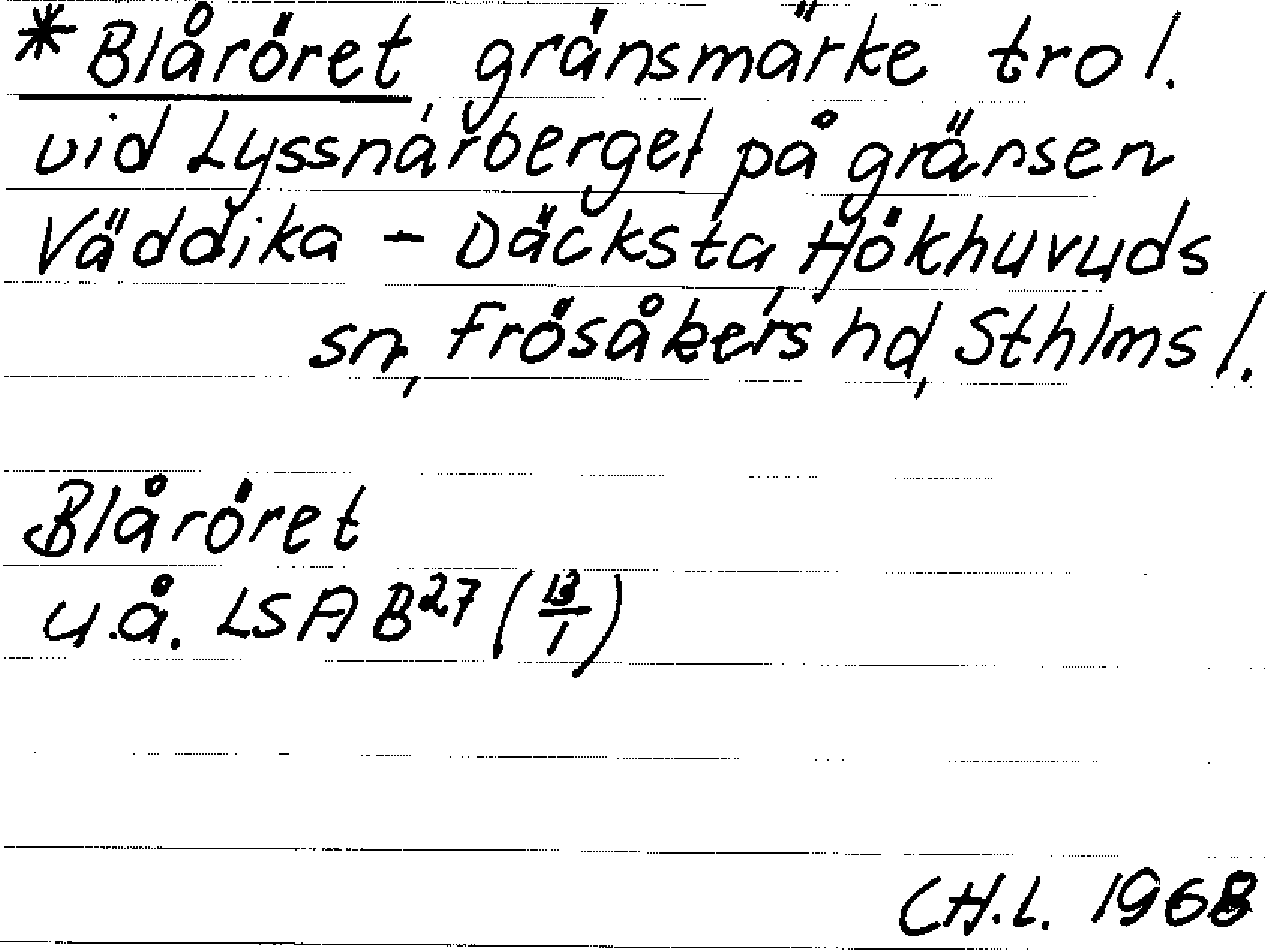 *Blåröret, gränsmärke trol.
vid Lyssnarberget på gränsen
Väddika - Däcksta, Hökhuvuds
sn, Frösåkers hd, Sthlms l.
Blåröret
u.å. LSA B27 (13/1)
CH.L. 1968